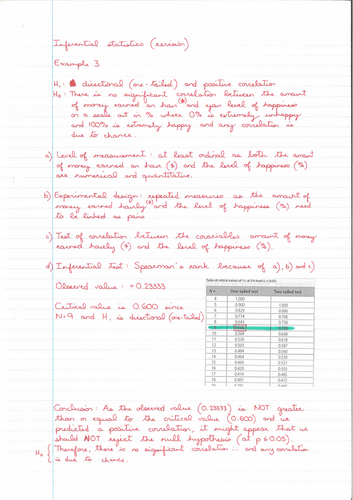 Inferential statistics (revision)
Example 3
H₁: directional (one-tailed) and positive correlation
H₀: There is no significant correlation between the amount
of money earned an hair ($) and your level of happiness
on a scale out in % where 0% is extremely unhappy
and 100% is extremely happy and any correlation is
due to chance.
a) Level of measurement: at least ordinal as both the amount
of money earned an hair ($) and the level of happiness (%)
are numerical and quantitative.
b) Experimental design: repeated measures as the amount of
money earned hairly ($) and the level of happiness (%) need
to be linked as pairs
c) Test of correlation between the covariables amount of money
earned hairly ($) and the level of happiness (%).
d) Inferential test: Spearman's rank because of a), b) and c)
Observed value: +0.23333
Critical value is 0.600 since
N=9 and H₁ is directional (one-tailed)
N = One-tailed test Two-tailed test
4 1.000
5 0.900 1.000
6 0.829 0.886
7 0.714 0.786
8 0.643 0.738
9 0.600 0.700
10 0.564 0.648
11 0.536 0.618
12 0.503 0.587
13 0.484 0.560
14 0.464 0.538
15 0.443 0.521
16 0.429 0.503
17 0.414 0.485
18 0.401 0.472
Conclusion: As the observed value (0.23333) is NOT greater
than or equal to the critical value (0.600) and we
predicted a positive correlation, it might appear that we
should NOT reject the null hypothesis (at p≤0.05).
H₀ { Therefore, there is no significant correlation ... and any correlation
is due to chance.